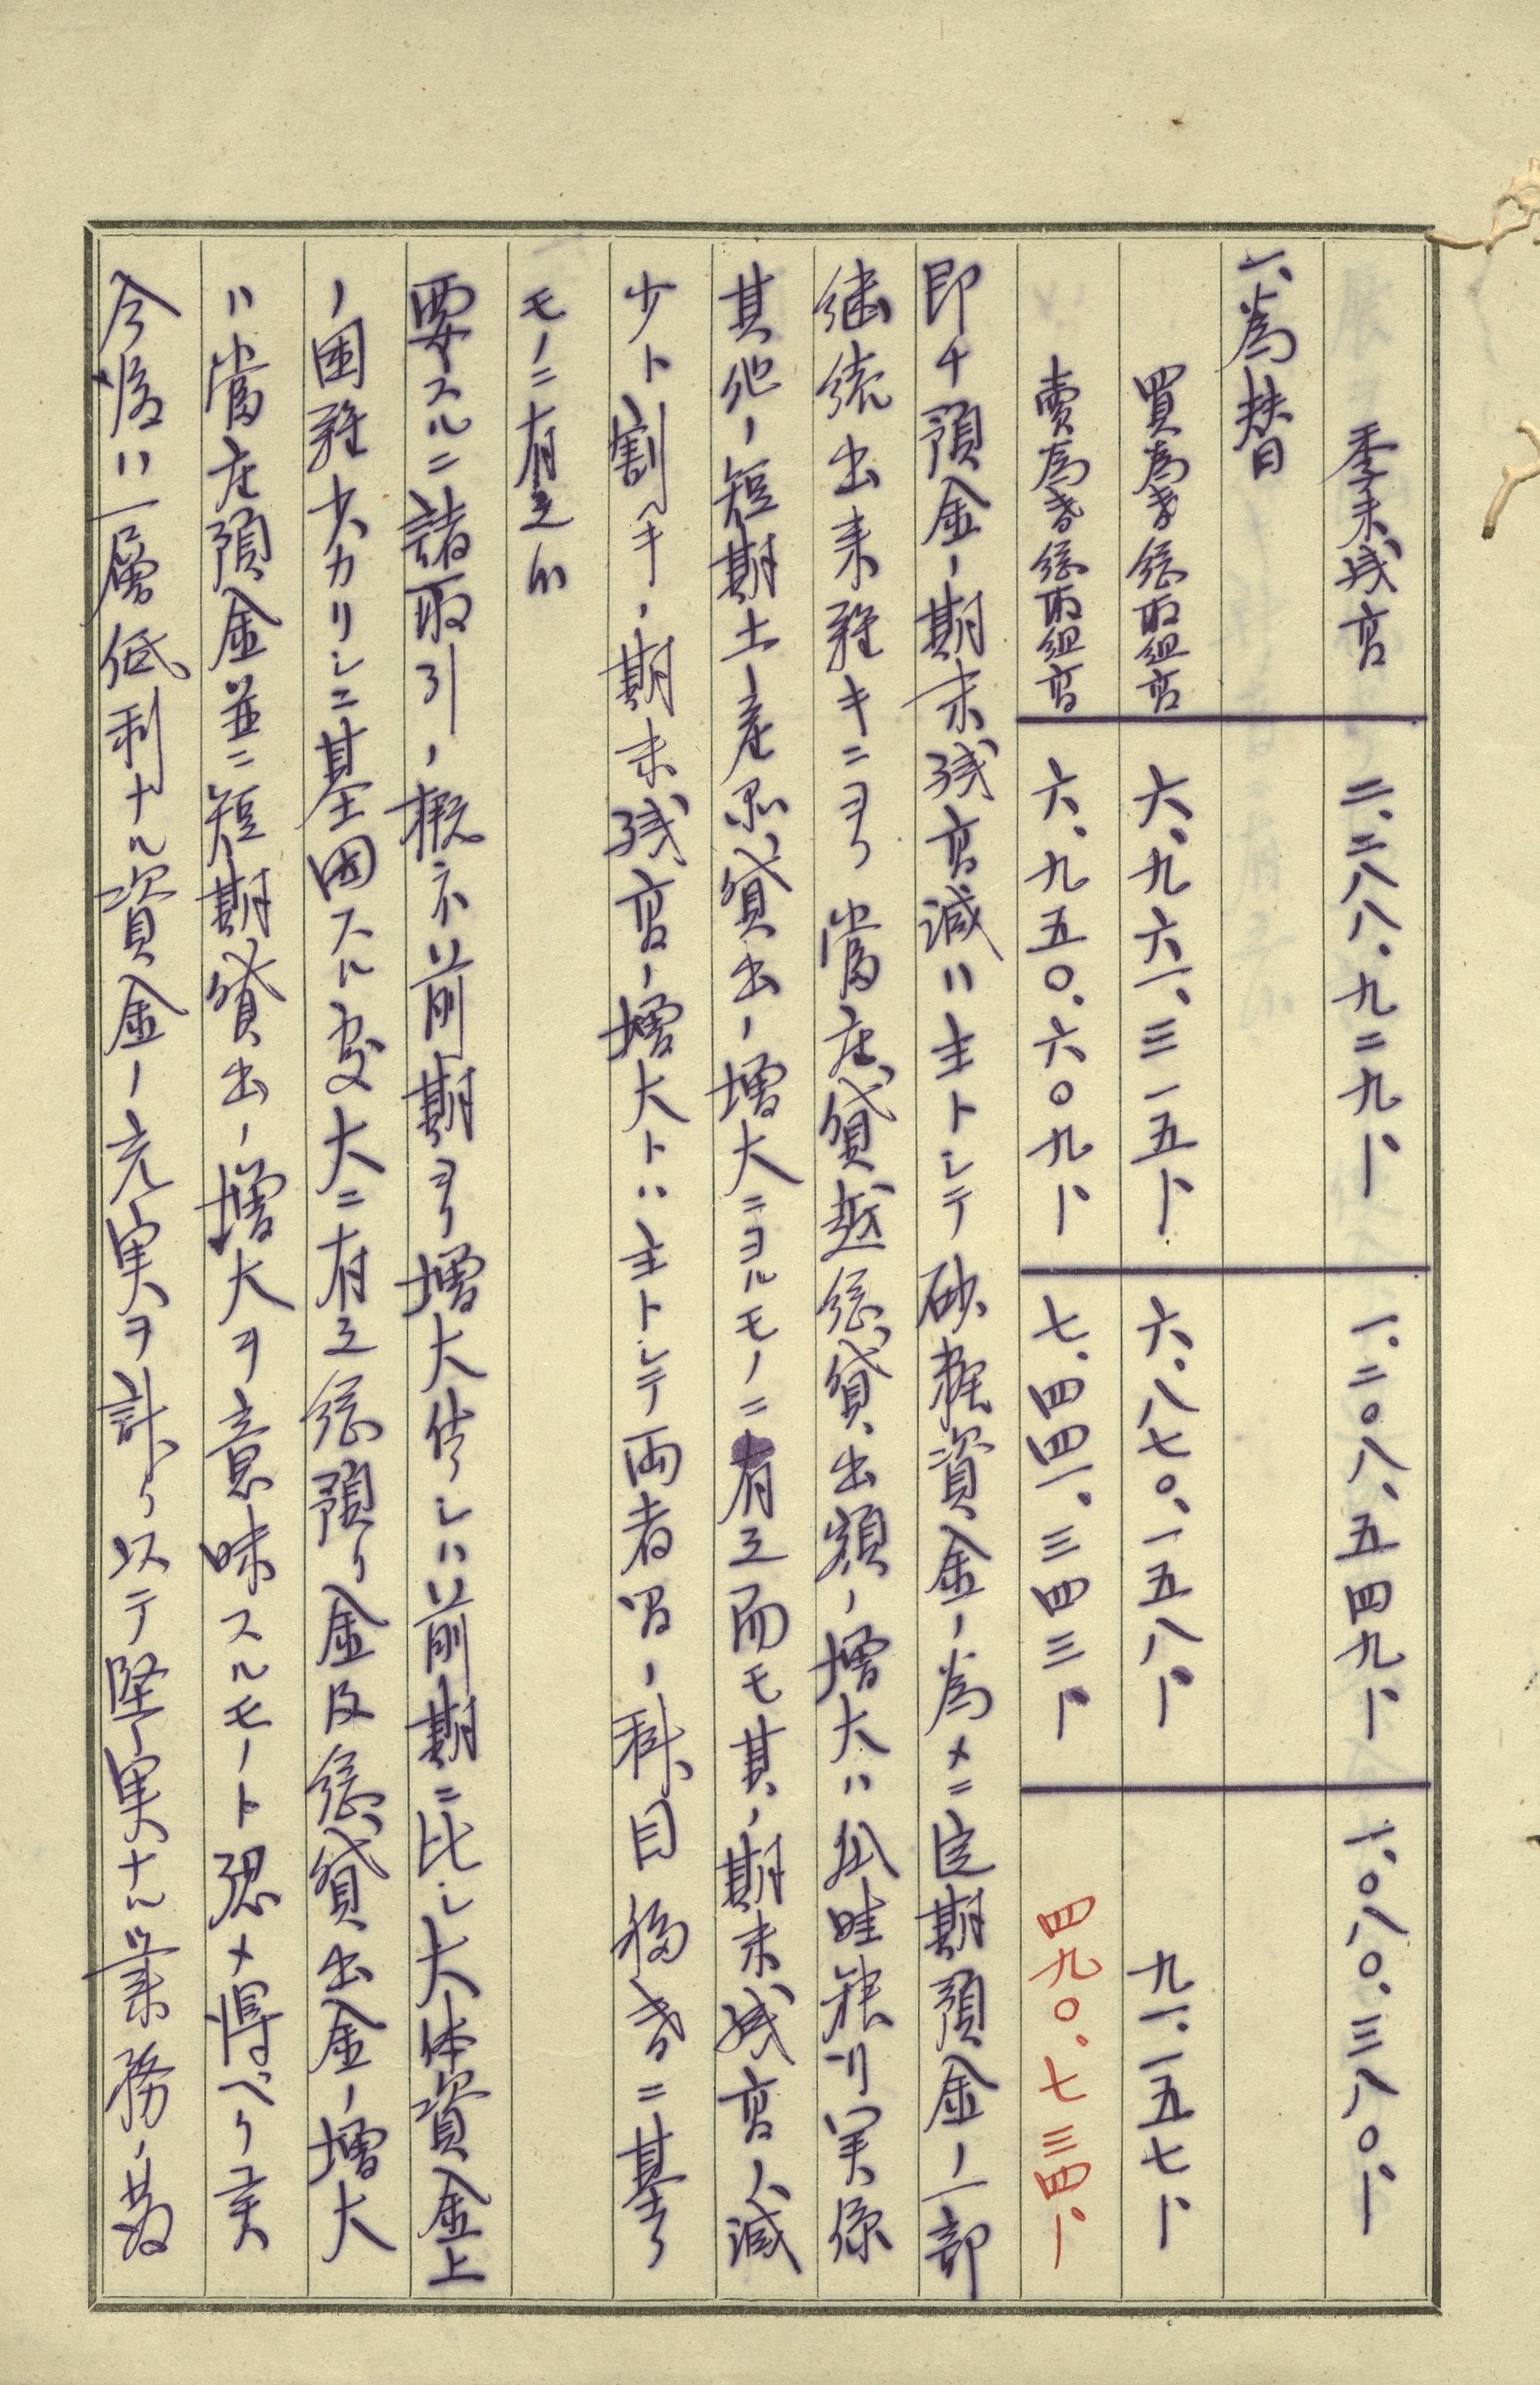 季末残高 二、二八八、九二九ー 一、二〇八、五四九ー 一、〇八〇、三八〇ー
一、為替
買為替総取組高 六、九六一、三一五ー 六、八七〇、一五八ー 九一、一五七ー
賣為替総取組高 六、九五〇、六〇九ー 七、四四一、三四三ー 四九〇、七三四ー
即チ預金ノ期末残高減ハ主トシテ砂糖資金ノ為メニ定期預金ノ一部
継続出来難キニヨリ當座貸越総貸出額ノ増大ハ 実係
其他ノ短期土産品貸出ノ増大ニヨルモノニ有之而モ其ノ期末残高ノ減
少ト割手ノ期末残高ノ増大トハ主トシテ両者間ノ科目移替ニ基ク
モノニ有之候
要スルニ諸取引ノ概ネ前期ヨリ増大セシハ前期ニ比シ大体資金上
ノ困難少カリシニ基因スル處大ニ有之総預リ金及総貸出金ノ増大
ハ當座預金並ニ短期貸出ノ増大ヲ意味スルモノト認メ得ベク
今後ハ一層低利ナル資金ノ充実ヲ計リ以テ堅実ナル業務ノ